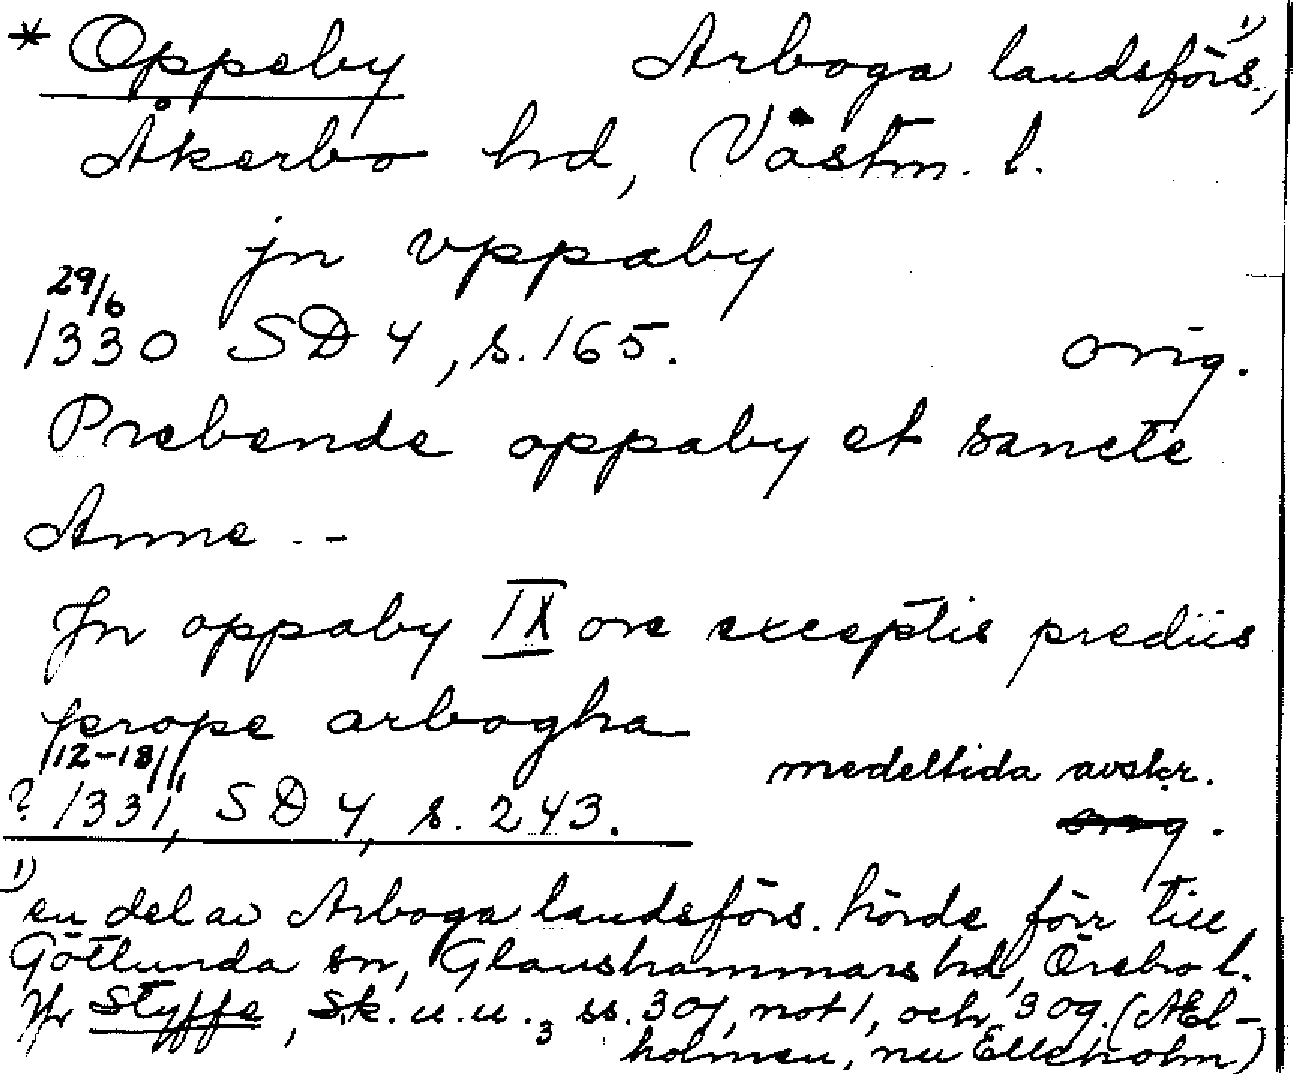 * Oppeby Arboga landsförs. 1),
Åkerbo hd, Västm. l.
jn vppaby
29/6
1330 SD 4, s. 165. orig.
Prebende oppaby et sancte
Anne --
Jn oppaby IX ore exceptis prediis
prope arbogha
12-18/11 medeltida avskr.
? 1331, SD 4, s. 243. orig.
1) en del av Arboga landsförs. hörde förr till
Götlunda sn, Glanshammars hd, Örebro l.
Jfr Styffe, Sk. u. u. 3 ss. 301, not 1, och 309. (Æl-
holmen, nu Elleholm)